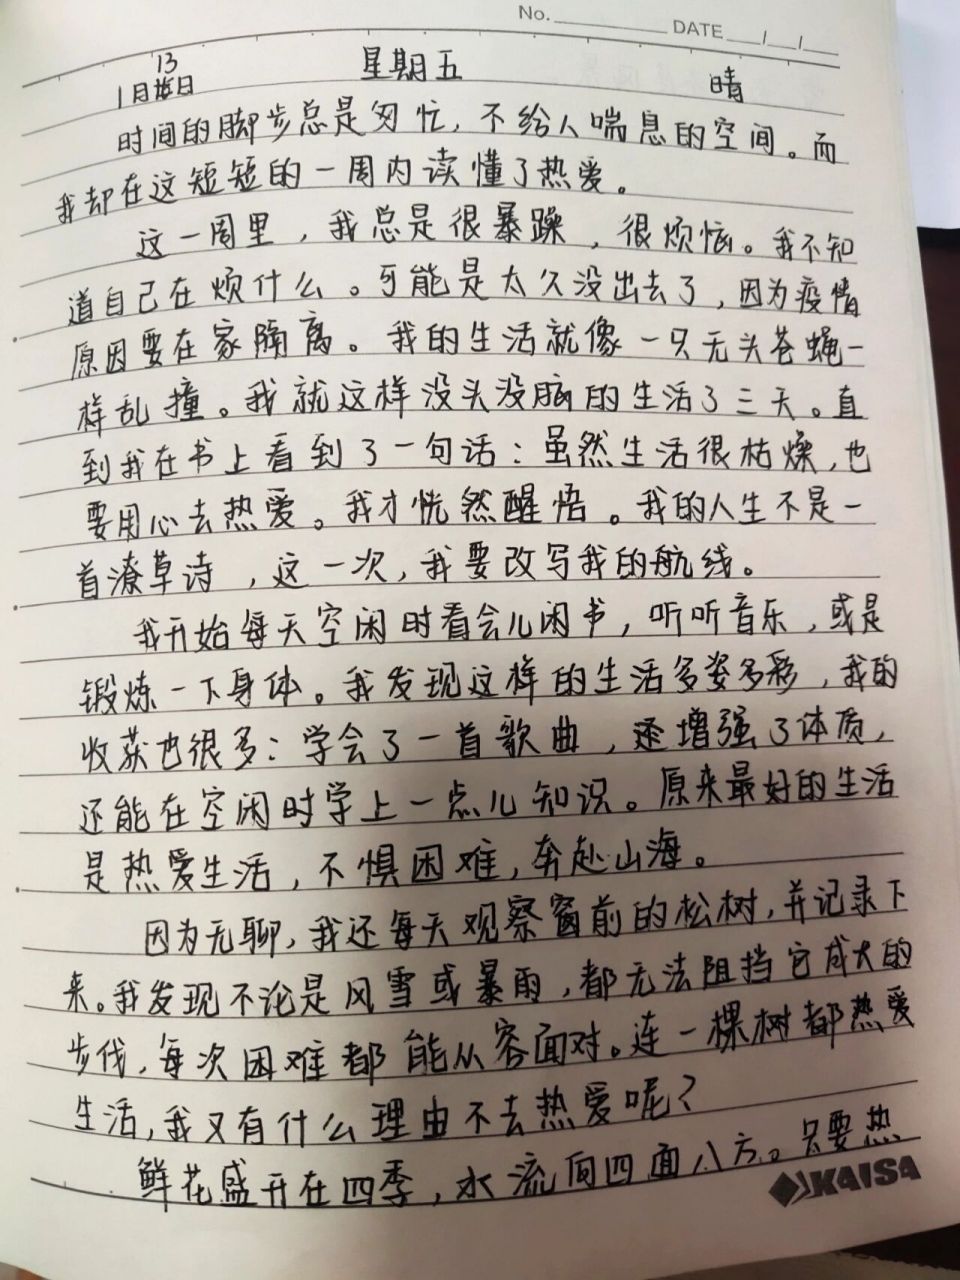 No. DATE / /
1月13日 星期五 晴
时间的脚步总是匆忙，不给人喘息的空间。而
我却在这短短的一周内读懂了热爱。
这一周里，我总是很暴躁，很烦恼。我不知
道自己在烦什么。可能是太久没出去了，因为疫情
原因要在家隔离。我的生活就像一只无头苍蝇一
样乱撞。我就这样没头没脑的生活了三天。直
到我在书上看到了一句话：虽然生活很枯燥，也
要用心去热爱。我才恍然醒悟。我的人生不是一
首潦草诗，这一次，我要改写我的航线。
我开始每天空闲时看会儿闲书，听听音乐，或是
锻炼一下身体。我发现这样的生活多姿多彩，我的
收获也很多：学会了一首歌曲，还增强了体质，
还能在空闲时学上一点儿知识。原来最好的生活
是热爱生活，不惧困难，奔赴山海。
因为无聊，我还每天观察窗前的松树，并记录下
来。我发现不论是风雪或暴雨，都无法阻挡它成大的
步伐，每次困难都能从容面对。连一棵树都热爱
生活，我又有什么理由不去热爱呢？
鲜花盛开在四季，水流向四面八方。只要热
KAISA